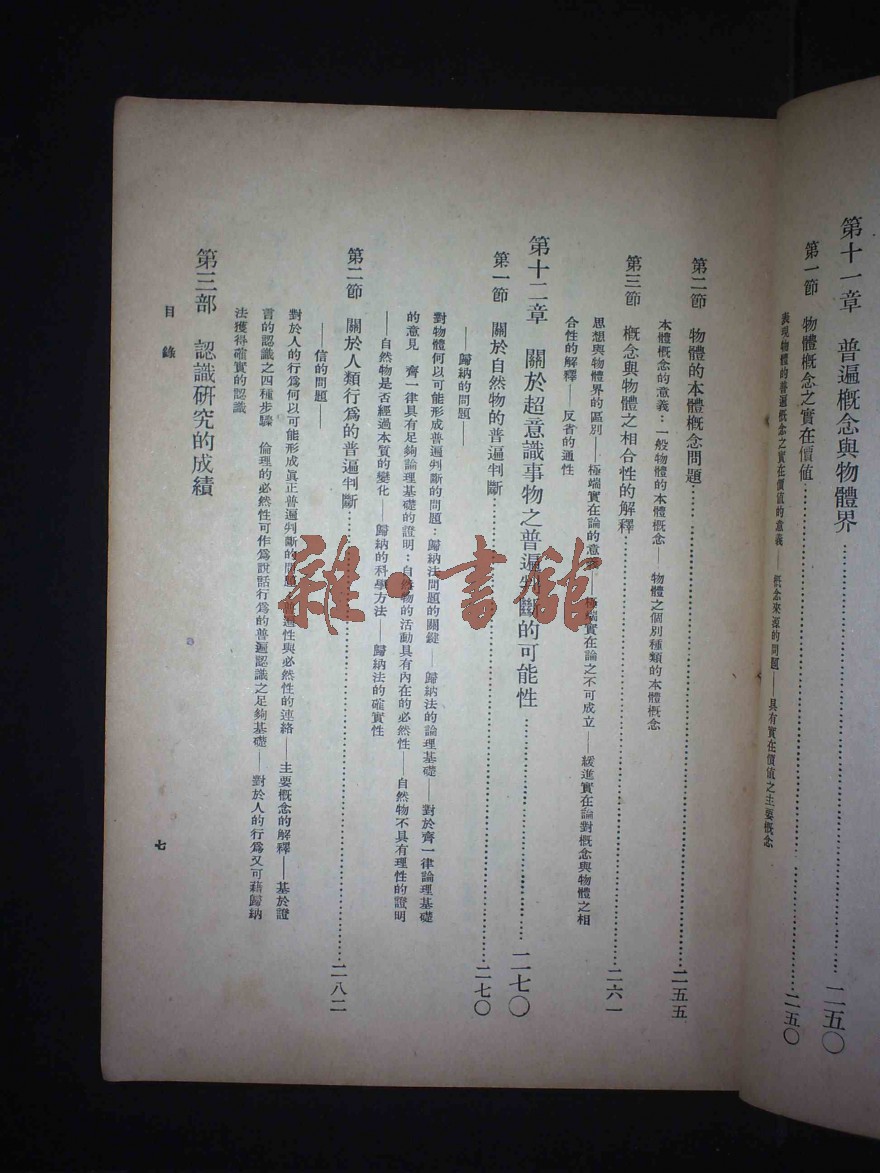 第十一章 普遍概念與物體界……二五〇
第一節 物體概念之實在價值……二五〇
表現物體的普遍概念之實在價值的意義——概念來源的問題——具有實在價值之主要概念
第二節 物體的本體概念問題……二五五
本體概念的意義：一般物體的本體概念——物體之個別種類的本體概念
第三節 概念與物體之相合性的解釋……二六一
思想與物體界的區別——極端實在論的意義——極端實在論之不可成立——緩進實在論對概念與物體之相
合性的解釋——反省的通性
第十二章 關於超意識事物之普遍判斷的可能性……二七〇
第一節 關於自然物的普遍判斷……二七〇
——歸納的問題——
對物體何以可能形成普遍判斷的問題：歸納法問題的關鍵——歸納法的論理基礎——對於齊一律論理基礎
的意見 齊一律具有足夠論理基礎的證明：自然物的活動具有內在的必然性——自然物不具有理性的證明
——自然物是否經過本質的變化——歸納的科學方法——歸納法的確實性
第二節 關於人類行為的普遍判斷……二八二
——信的問題——
對於人的行為何以可能形成眞正普遍判斷的問題 普遍性與必然性的連絡——主要概念的解釋——基於證
言的認識之四種步驟 倫理的必然性可作為說話行為的普遍認識之足夠基礎——對於人的行為又可藉歸納
法獲得確實的認識
第三部 認識研究的成績
目錄
七
雜·書館